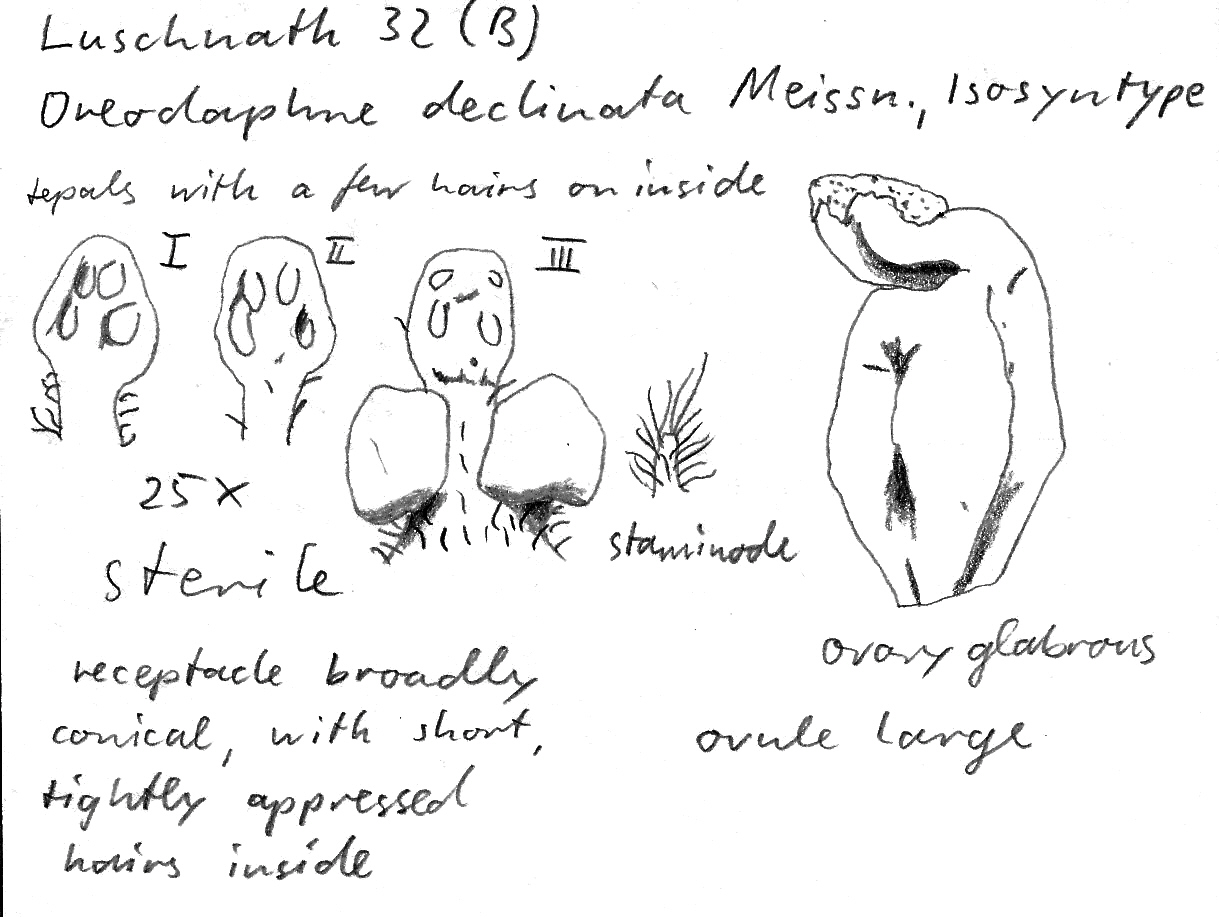 Luschnath 32 (B)
Oreodaphne declinata Meissn., Isosyntype
tepals with a few hairs on inside
I II III
25 x
staminode
sterile
ovary glabrous
receptacle broadly
conical, with short,
ovule large
tightly appressed
hairs inside